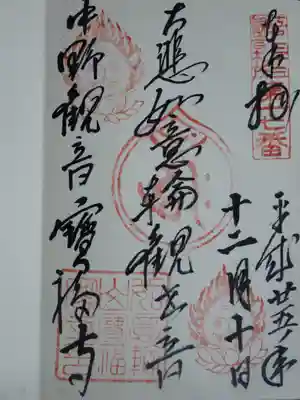 奉拝
平成廿五年
十二月十日
大悲如意輪観世音
中野観音寳福寺